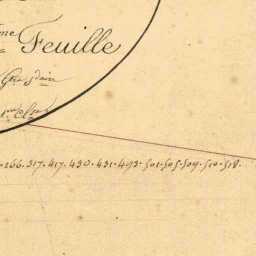 me
Feuille
266. 317. 417. 430. 431. 493. 501. 505. 509. 510. 518.